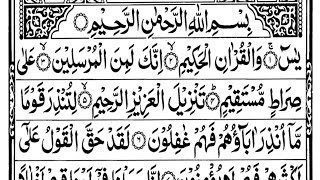 بِسْمِ اللهِ الرَّحْمٰنِ الرَّحِيْمِ
يٰسٓ ۚ ۝ وَالْقُرْاٰنِ الْحَكِيْمِ ۙ ۝ اِنَّكَ لَمِنَ الْمُرْسَلِيْنَ ۙ ۝ عَلٰى
صِرَاطٍ مُّسْتَقِيْمٍ ۝ تَنْزِيْلَ الْعَزِيْزِ الرَّحِيْمِ ۙ ۝ لِتُنْذِرَ قَوْمًا
مَّاۤ اُنْذِرَ اٰبَآؤُهُمْ فَهُمْ غٰفِلُوْنَ ۝ لَقَدْ حَقَّ الْقَوْلُ عَلٰٓى